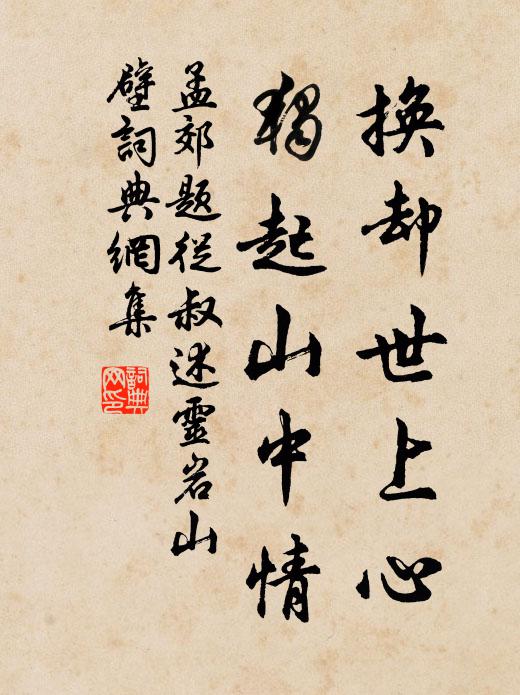 換却世上心
獨起山中情
孟郊題從叔述靈岩山
壁詞典網集
詞典网印